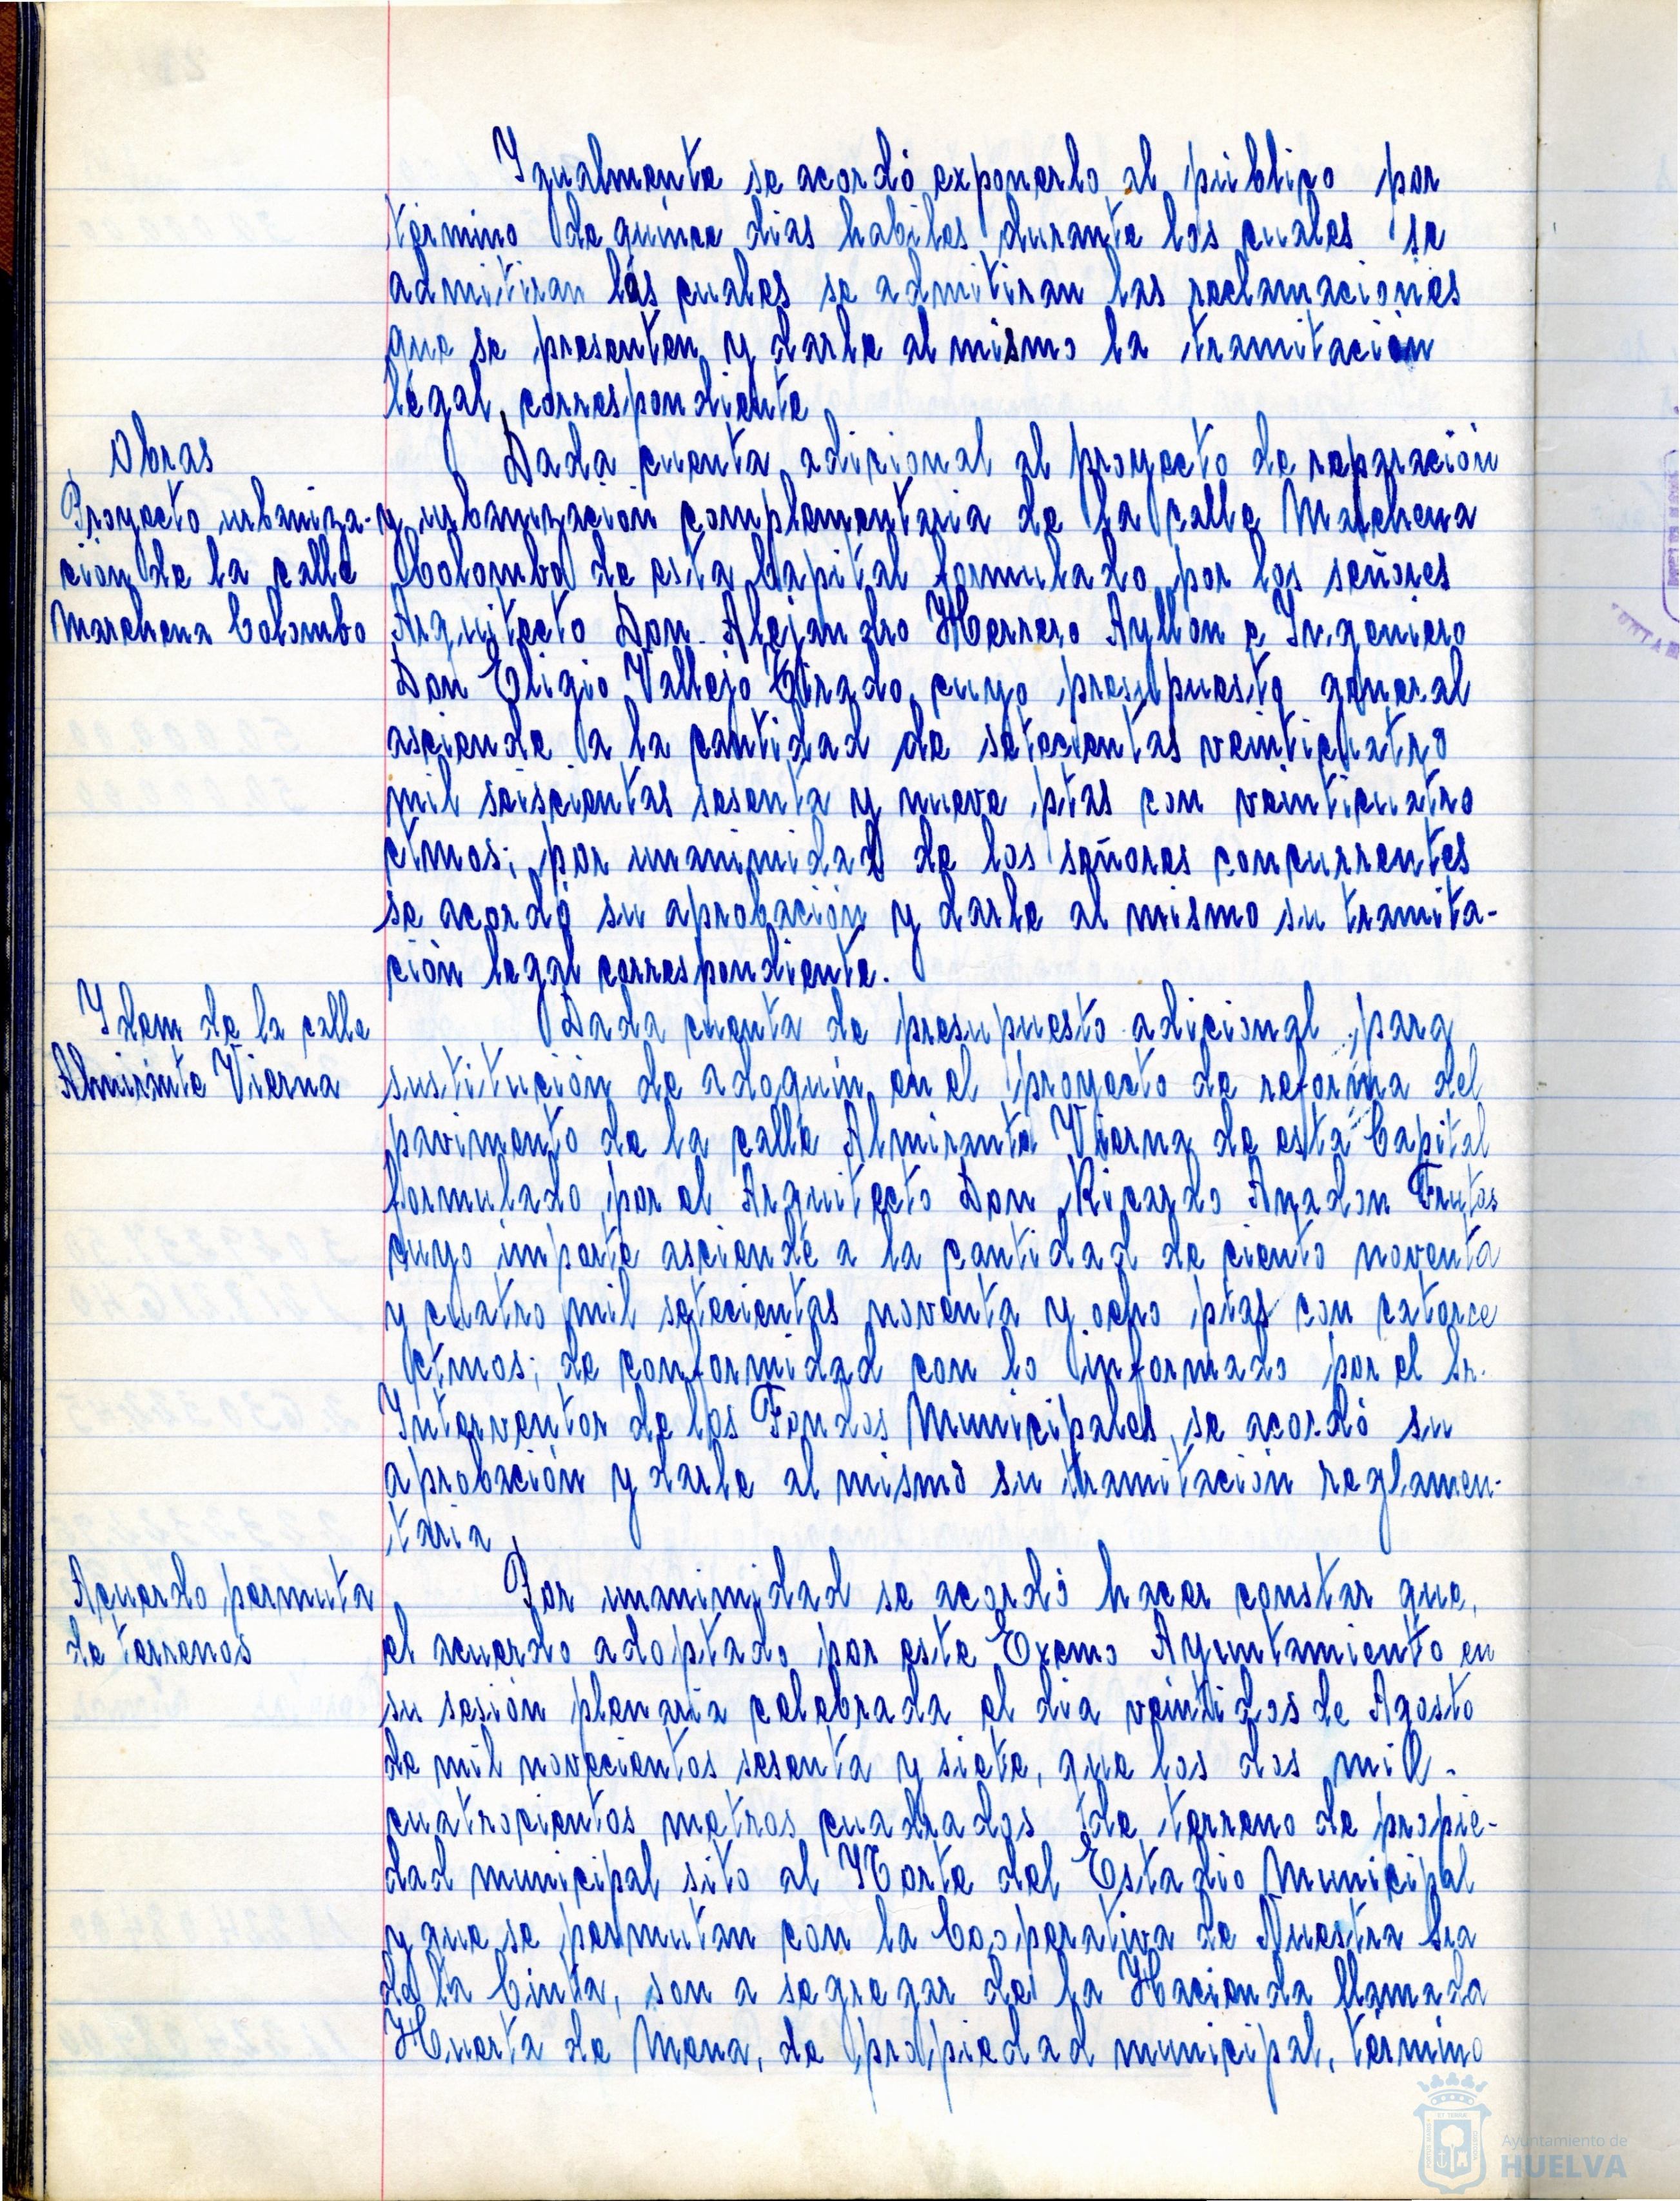 Igualmente se acordó exponerlo al público por
término de quince dias habiles durante los cuales se
admitiran las cuales se admitiran las reclamaciones
que se presenten y darle al mismo la tramitación
legal correspondiente
Obras
Proyecto urbaniza-
ción de la calle
Marchena Colombo
Dada cuenta adicional al proyecto de reparación
y urbanización complementaria de la calle Marchena
Colombo de esta Capital formulado por los señores
Arquitecto Don Alejandro Herrero Ayllon e Ingeniero
Don Eligio Vallejo Tirado cuyo presupuesto general
asciende a la cantidad de setecientas veinticuatro
mil seiscientas sesenta y nueve ptas con veinticuatro
ctmos; por unanimidad de los señores concurrentes
se acordó su aprobación y darle al mismo su tramita-
ción legal correspondiente.
Idem de la calle
Almirante Vierna
Dada cuenta de presupuesto adicional para
sustitución de adoquin en el proyecto de reforma del
pavimento de la calle Almirante Vierna de esta Capital
formulado por el Arquitecto Don Ricardo Anadon Frutos
cuyo importe asciende a la cantidad de ciento noventa
y cuatro mil setecientas noventa y ocho ptas con catorce
ctmos; de conformidad con lo informado por el Sr.
Interventor de los Fondos Municipales, se acordó su
aprobación y darle al mismo su tramitación reglamen-
taria
Acuerdo permuta
de terrenos
Por unanimidad se acordó hacer constar que,
el acuerdo adoptado por este Excmo Ayuntamiento en
su sesión plenaria celebrada el dia veintidos de Agosto
de mil novecientos sesenta y siete, que los dos mil
cuatrocientos metros cuadrados de terreno de propie-
dad municipal sito al Norte del Estadio Municipal
y que se permutan con la Cooperativa de Nuestra Sra
de la Cinta, son a segregar de la Hacienda llamada
Huerta de Mena, de propiedad municipal, término
Ayuntamiento de
HUELVA